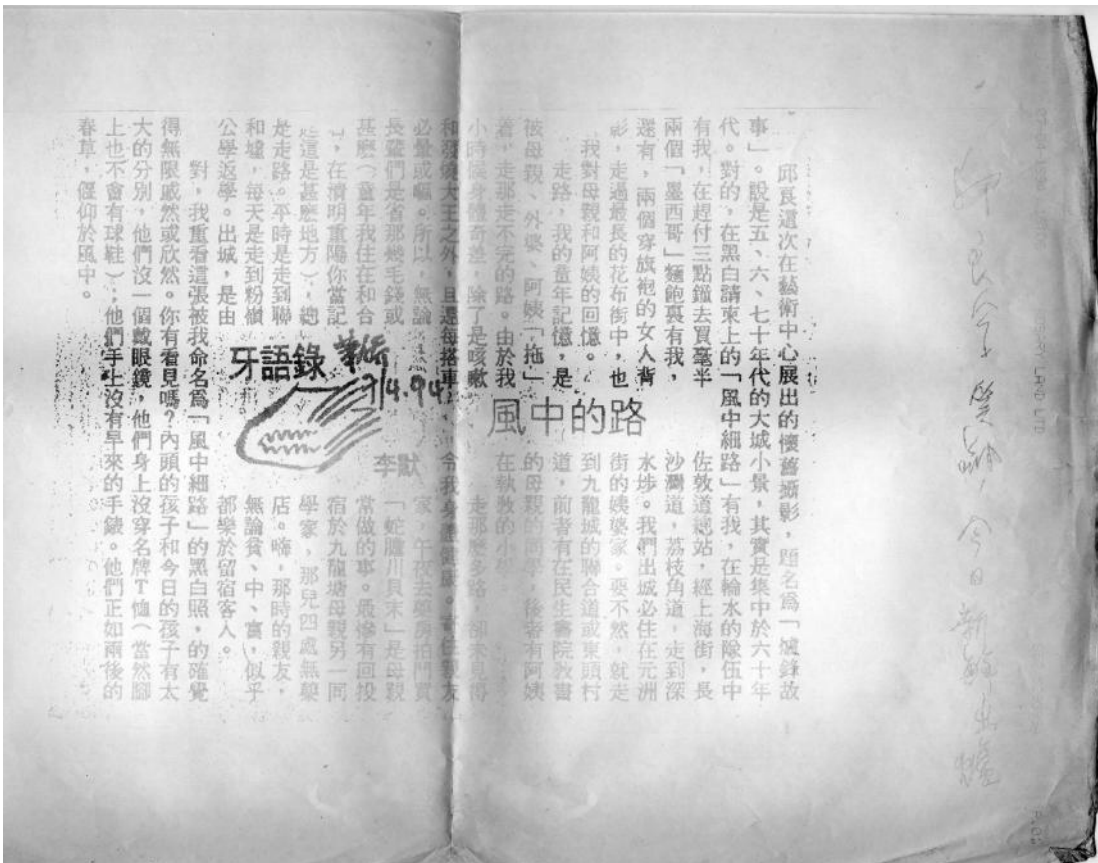 邱良今年獎
今日新
風中的路
牙語錄
李默
華僑
7/4.94
邱良這次在藝術中心展出的懷舊攝影,題名為「爐鋒故
事」。說是五、六、七十年代的大城小景,其實是集中於六十年
代。對的,在黑白請柬上的「風中細路」有我,在輪水的隊伍中
有我,在趕付三點鐘去買毫半
兩個「墨西哥」麵飽與有我,
還有,兩個穿旗袍的女人背
影,走過最長的花布街中,也
我對母親和阿姨的回憶。
走路,我的童年記憶,是
彼母親、外婆、阿姨「拖」
着,走那走不完的路。由於我
小時候身體奇差,除了是咳嗽
和發燒大王之外,且還每搭車
必暈或嘔。所以,無論
長輩們是省那幾毛錢或
甚麽(童年我住在和合
,在清明重陽你當記
這是甚麽地方),總
是走路。平時是走到聯
和墟,每天是走到粉嶺
公學返學。出城,是由
佐敦道總站,經上海街,長
沙灣道,荔枝角道,走到深
水埗。我們出城必住在元洲
街的姨婆家。要不然,就走
到九龍城的聯合道或東頭村
道,前者有在民生書院教書
的母親的同學,後者有阿姨
在執教的小學。
走那麽多路,卻未見得
令我身體健康。寄住親友
家,午夜去藥房拍門買
「蛇膽川貝末」是母親
常做的事。最慘有回投
宿於九龍塘母親另一同
學家,那兒四處無藥
店。嗨,那時的親友,
無論貧、中、富,似乎
都樂於留宿客人。
對,我重看這張被我命名為「風中細路」的黑白照,的確覺
得無限感然或欣然。你有看見嗎?內頭的孩子和今日的孩子有太
大的分別,他們沒一個戴眼鏡,他們身上沒穿名牌T恤(當然腳
上也不會有球鞋);他們手上沒有早來的手錶。他們正如雨後的
春草,偃仰於風中。